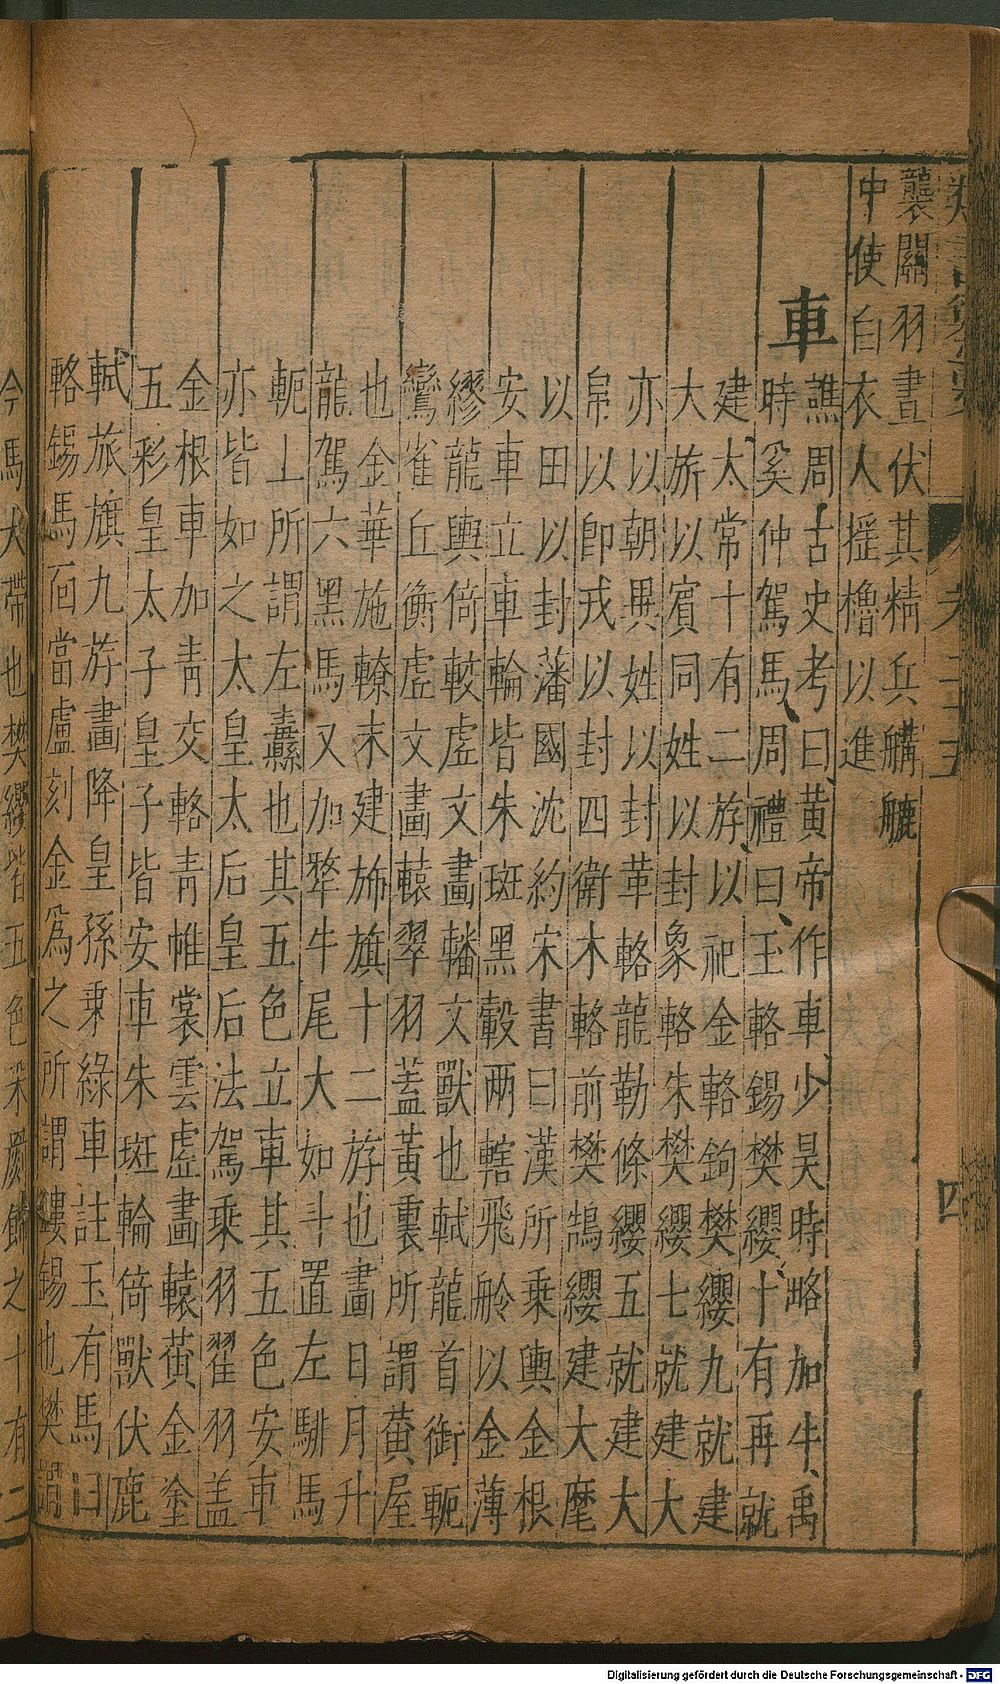 類書纂要 卷三十五 四
襲關羽晝伏其精兵𦪇
中使白衣人摇櫓以進
車
譙周古史考曰黃帝作車少昊時略加牛、禹
時奚仲駕馬、周禮曰、玉輅錫樊纓、十有再就
建太常十有二斿、以祀金輅鉤樊纓九就建
大旂以賓同姓以封象輅朱樊纓七就建大
亦以朝異姓以封革輅龍勒條纓五就建大
帛以即戎以封四衛木輅前樊鵠纓建大麾
以田以封藩國沈約宋書曰漢所乗輿金根
安車立車輪皆朱斑黑轂两轄飛軨以金薄
繆龍輿倚較虗文畫轓文獸也軾龍首銜軛
鸞雀丘衡虗文畫轅翠羽葢黃裏所謂黃屋
也金華施轑末建斾旗十二斿也畫日月升
龍駕六黑馬又加犛牛尾大如斗置左騑馬
軛上所謂左纛也其五色立車其五色安車
亦皆如之太皇太后皇后法駕乘羽翟羽盖
金根車加青交輅青帷裳雲虗畫轅黃金塗
五彩皇太子皇子皆安車朱斑輪倚獸伏鹿
軾旅旗九斿畫降皇孫乗綠車註玉有馬曰
輅錫馬面當盧刻金爲之所謂鏤錫也樊謂
今馬大帶也樊纓皆五色飾之十有二
Digitalisierung gefördert durch die Deutsche Forschungsgemeinschaft - DFG